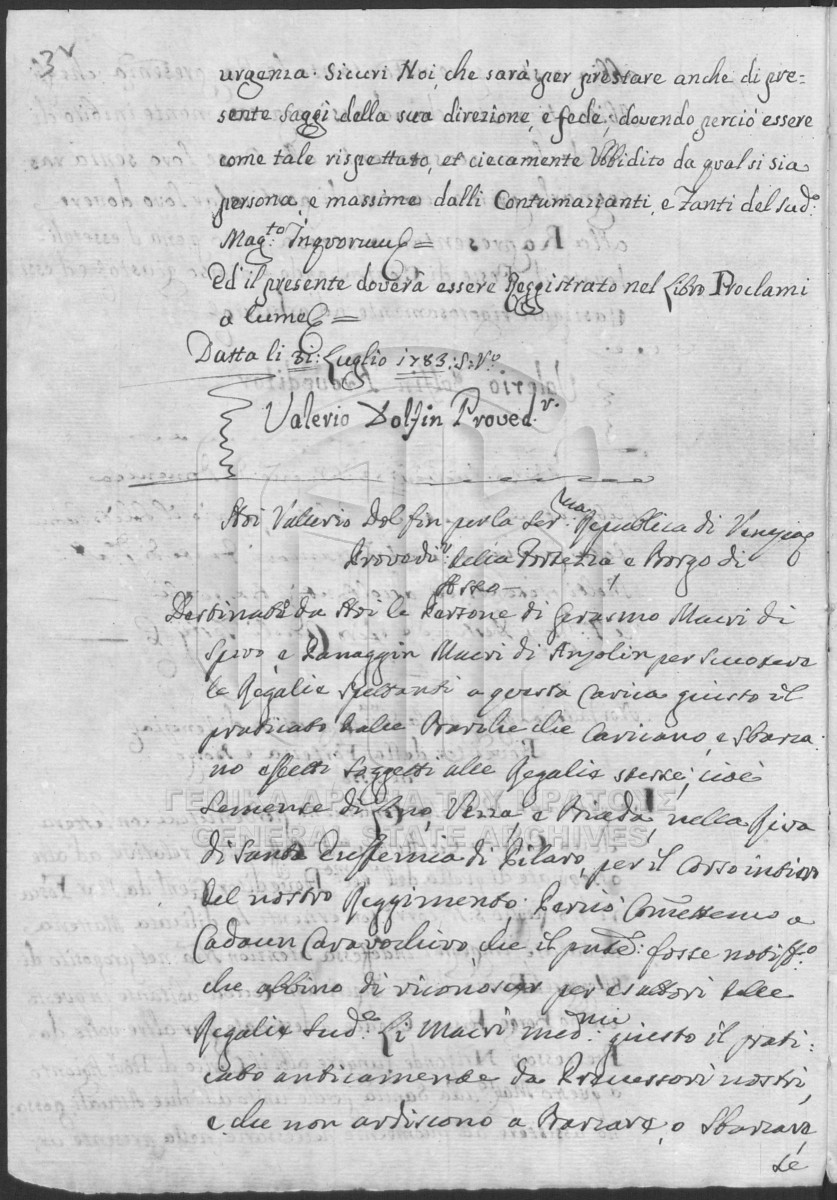 3v
urgenza. Sicuri Noi, che sarà per prestare anche di pre=
sente saggi della sua direzione, e fede; dovendo perciò essere
come tale rispettato, et ciecamente Ubbidito da qual si sia
persona, e massime dalli Contumazianti, e Zanti del sud.o
Mag.to Inquorum =
Ed il presente doverà essere Reggistrato nel Libro Proclami
a lume =
Datta li 31: Luglio 1783: S: V.o
Valerio Dolfin Proved.r
Noi Vallerio Dolfin per la Ser.ma Republica di Venezia
Proved.r della Fortezza e Borgo di
Asso
Destinati da Noi le Persone di Gerasmo Macri di
Spiro, e Panaggin Macri di Anzolin per scuotere
le Regalie spettanti a questa Carica giusto il
praticato dalle Barche che Caricano, e Sbarca:
no effetti soggetti alle Regalie stesse, cioè
Semense di Lino, Vezza, e Biada, nella Riva
di Santa Euffemia di Pilaro, per il Corso intiero
del nostro Reggimento. Perciò Comettemo a
Cadaun Caravochiro, che il pnte: fosse notiff.o
che abbino di riconoscer per esattori delle
Regalie sud.e Li Macri med.mi giusto il prati:
cato anticamente da Precessori nostri,
e che non ardiscono a Barcare, o Sbarcare
Se
ΓΕΝΙΚΑ ΑΡΧΕΙΑ ΤΟΥ ΚΡΑΤΟΥΣ
GENERAL STATE ARCHIVES